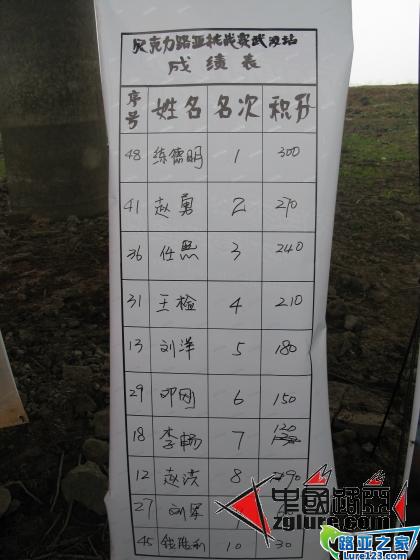 贝克力路亚挑战赛武汉站
成绩表
序号 姓名 名次 积分
48 练德明 1 300
41 赵勇 2 270
36 任熙 3 240
31 王检 4 210
13 刘洋 5 180
29 邓刚 6 150
18 李畅 7 120
12 赵洁 8 90
27 刘军
45 钱胜利 10 30
中国路亚
zglure.com
路亚之家
Lure123.com